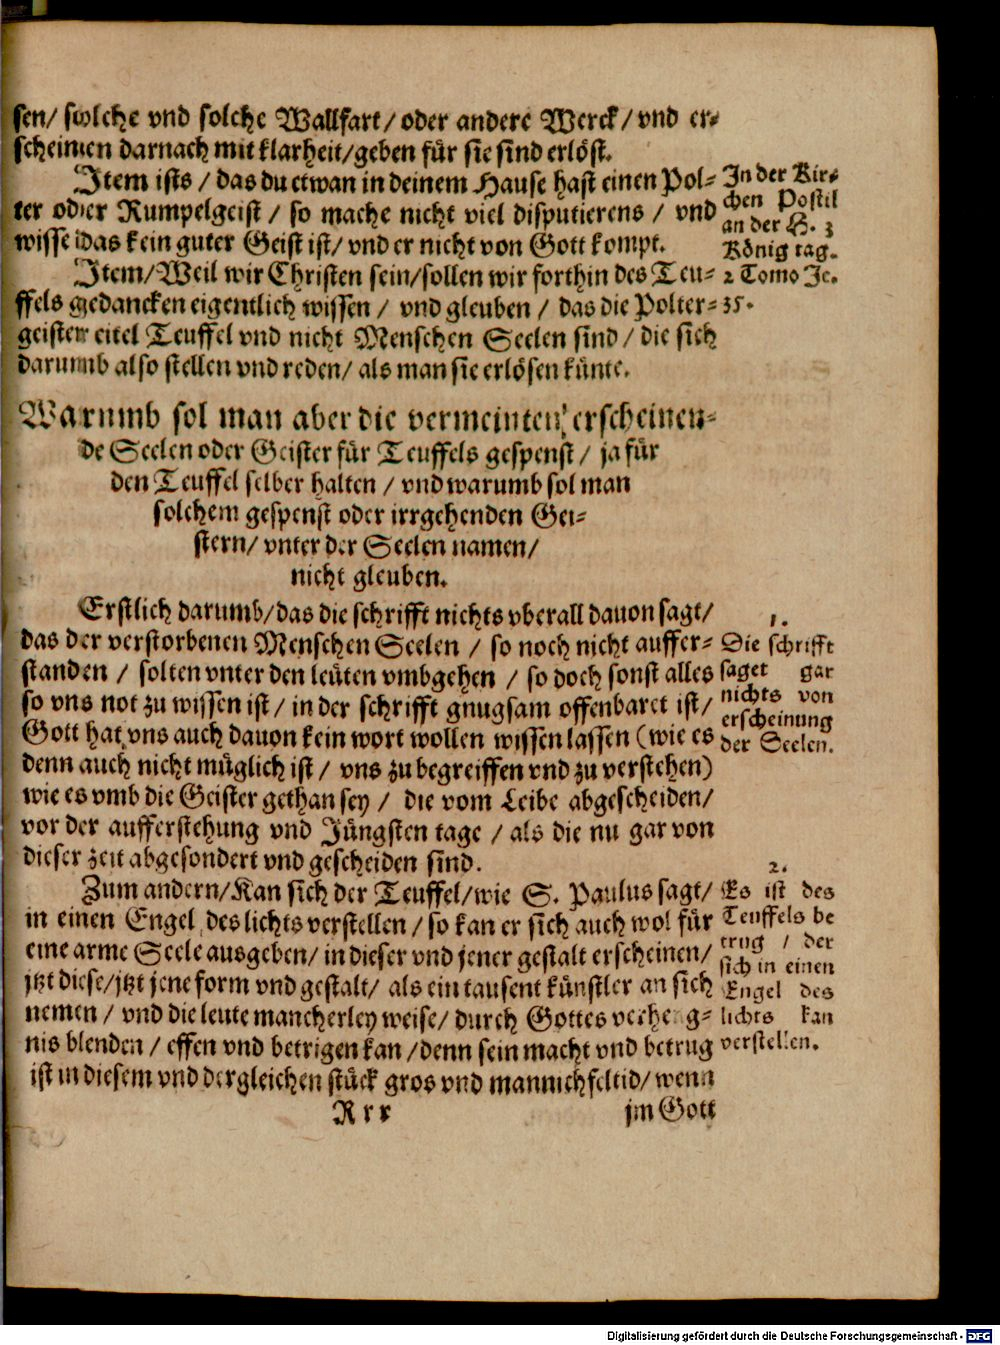 sen/ solche vnd solche Wallfart/ oder andere Werck/ vnd er-
scheinen darnach mit klarheit/ geben für sie sind erlöst.
Item ists / das du etwan in deinem Hause hast einen Pol-
ter oder Rumpelgeist / so mache nicht viel disputierens / vnd
wisse das kein guter Geist ist/ vnd er nicht von Gott kompt.
Item/ Weil wir Christen sein/ sollen wir forthin des Teu-
ffels gedancken eigentlich wissen / vnd gleuben / das die Polter-
geister eitel Teuffel vnd nicht Menschen Seelen sind / die sich
darumb also stellen vnd reden/ als man sie erlösen künte.
In der Kir-
chen Postil
an der H. 3
König tag.
2 Tomo Je.
35.
Warumb sol man aber die vermeinten erscheinen-
de Seelen oder Geister für Teuffels gespenst / ja für
den Teuffel selber halten / vnd warumb sol man
solchem gespenst oder irrgehenden Gei-
stern/ vnter der Seelen namen/
nicht gleuben.
Erstlich darumb/ das die schrifft nichts vberall dauon sagt/
das der verstorbenen Menschen Seelen / so noch nicht auffer-
standen / solten vnter den leüten vmbgehen / so doch sonst alles
so vns not zu wissen ist / in der schrifft gnugsam offenbaret ist/
Gott hat vns auch dauon kein wort wollen wissen lassen (wie es
denn auch nicht müglich ist / vns zu begreiffen vnd zu verstehen)
wie es vmb die Geister gethan sey / die vom Leibe abgescheiden/
vor der aufferstehung vnd Jüngsten tage / als die nu gar von
dieser zeit abgesondert vnd gescheiden sind.
1.
Die schrifft
saget gar
nichts von
erscheinung
der Seelen.
Zum andern/ Kan sich der Teuffel/ wie S. Paulus sagt/
in einen Engel des lichts verstellen / so kan er sich auch wol für
eine arme Seele ausgeben/ in dieser vnd jener gestalt erscheinen/
jtzt diese/ jtzt jene form vnd gestalt/ als ein tausent künstler an sich
nemen / vnd die leute mancherley weise/ durch Gottes verheng-
nis blenden / effen vnd betrigen kan / denn sein macht vnd betrug
ist in diesem vnd dergleichen stück gros vnd mannichfeltid/ wenn
2.
Es ist des
Teuffels be
trug / der
sich in einen
Engel des
lichts kan
verstellen.
Rrr
jm Gott
Digitalisierung gefördert durch die Deutsche Forschungsgemeinschaft - DFG